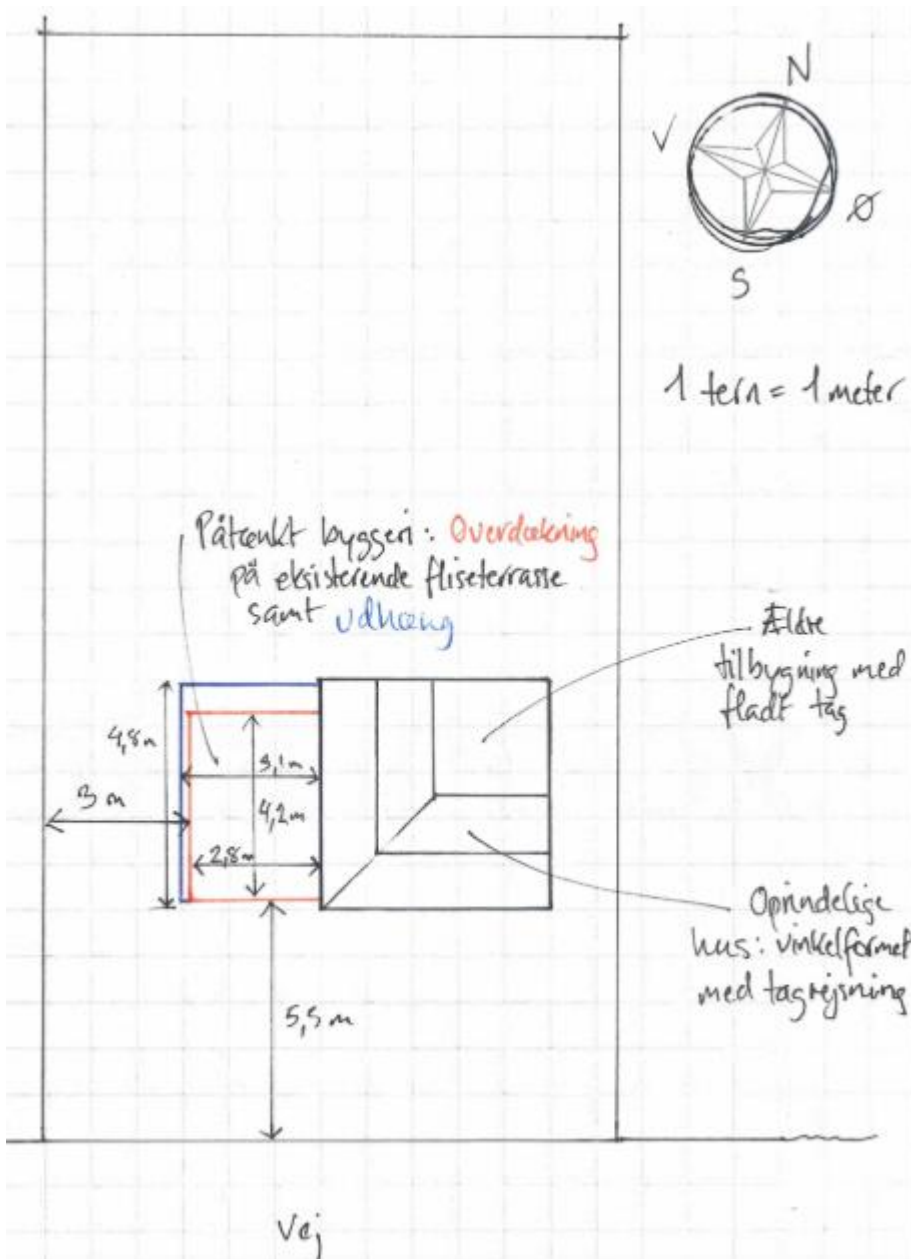 N
V
Ø
S
1 tern = 1 meter
Påtænkt byggeri: Overdækning
på eksisterende fliseterrasse
samt udhæng
Ældre
tilbygning med
fladt tag
4,8m
3,1m
3 m
4,2m
2,8m
Oprindelige
hus: vinkelformet
med tagrejsning
5,5 m
Vej